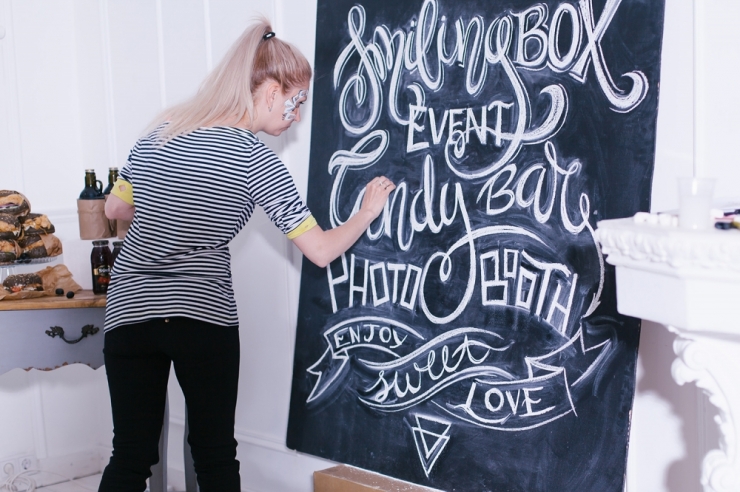 SmilingBOX
EVENT
Candy BAR
PHOTO BOOTH
ENJOY
sweet
LOVE